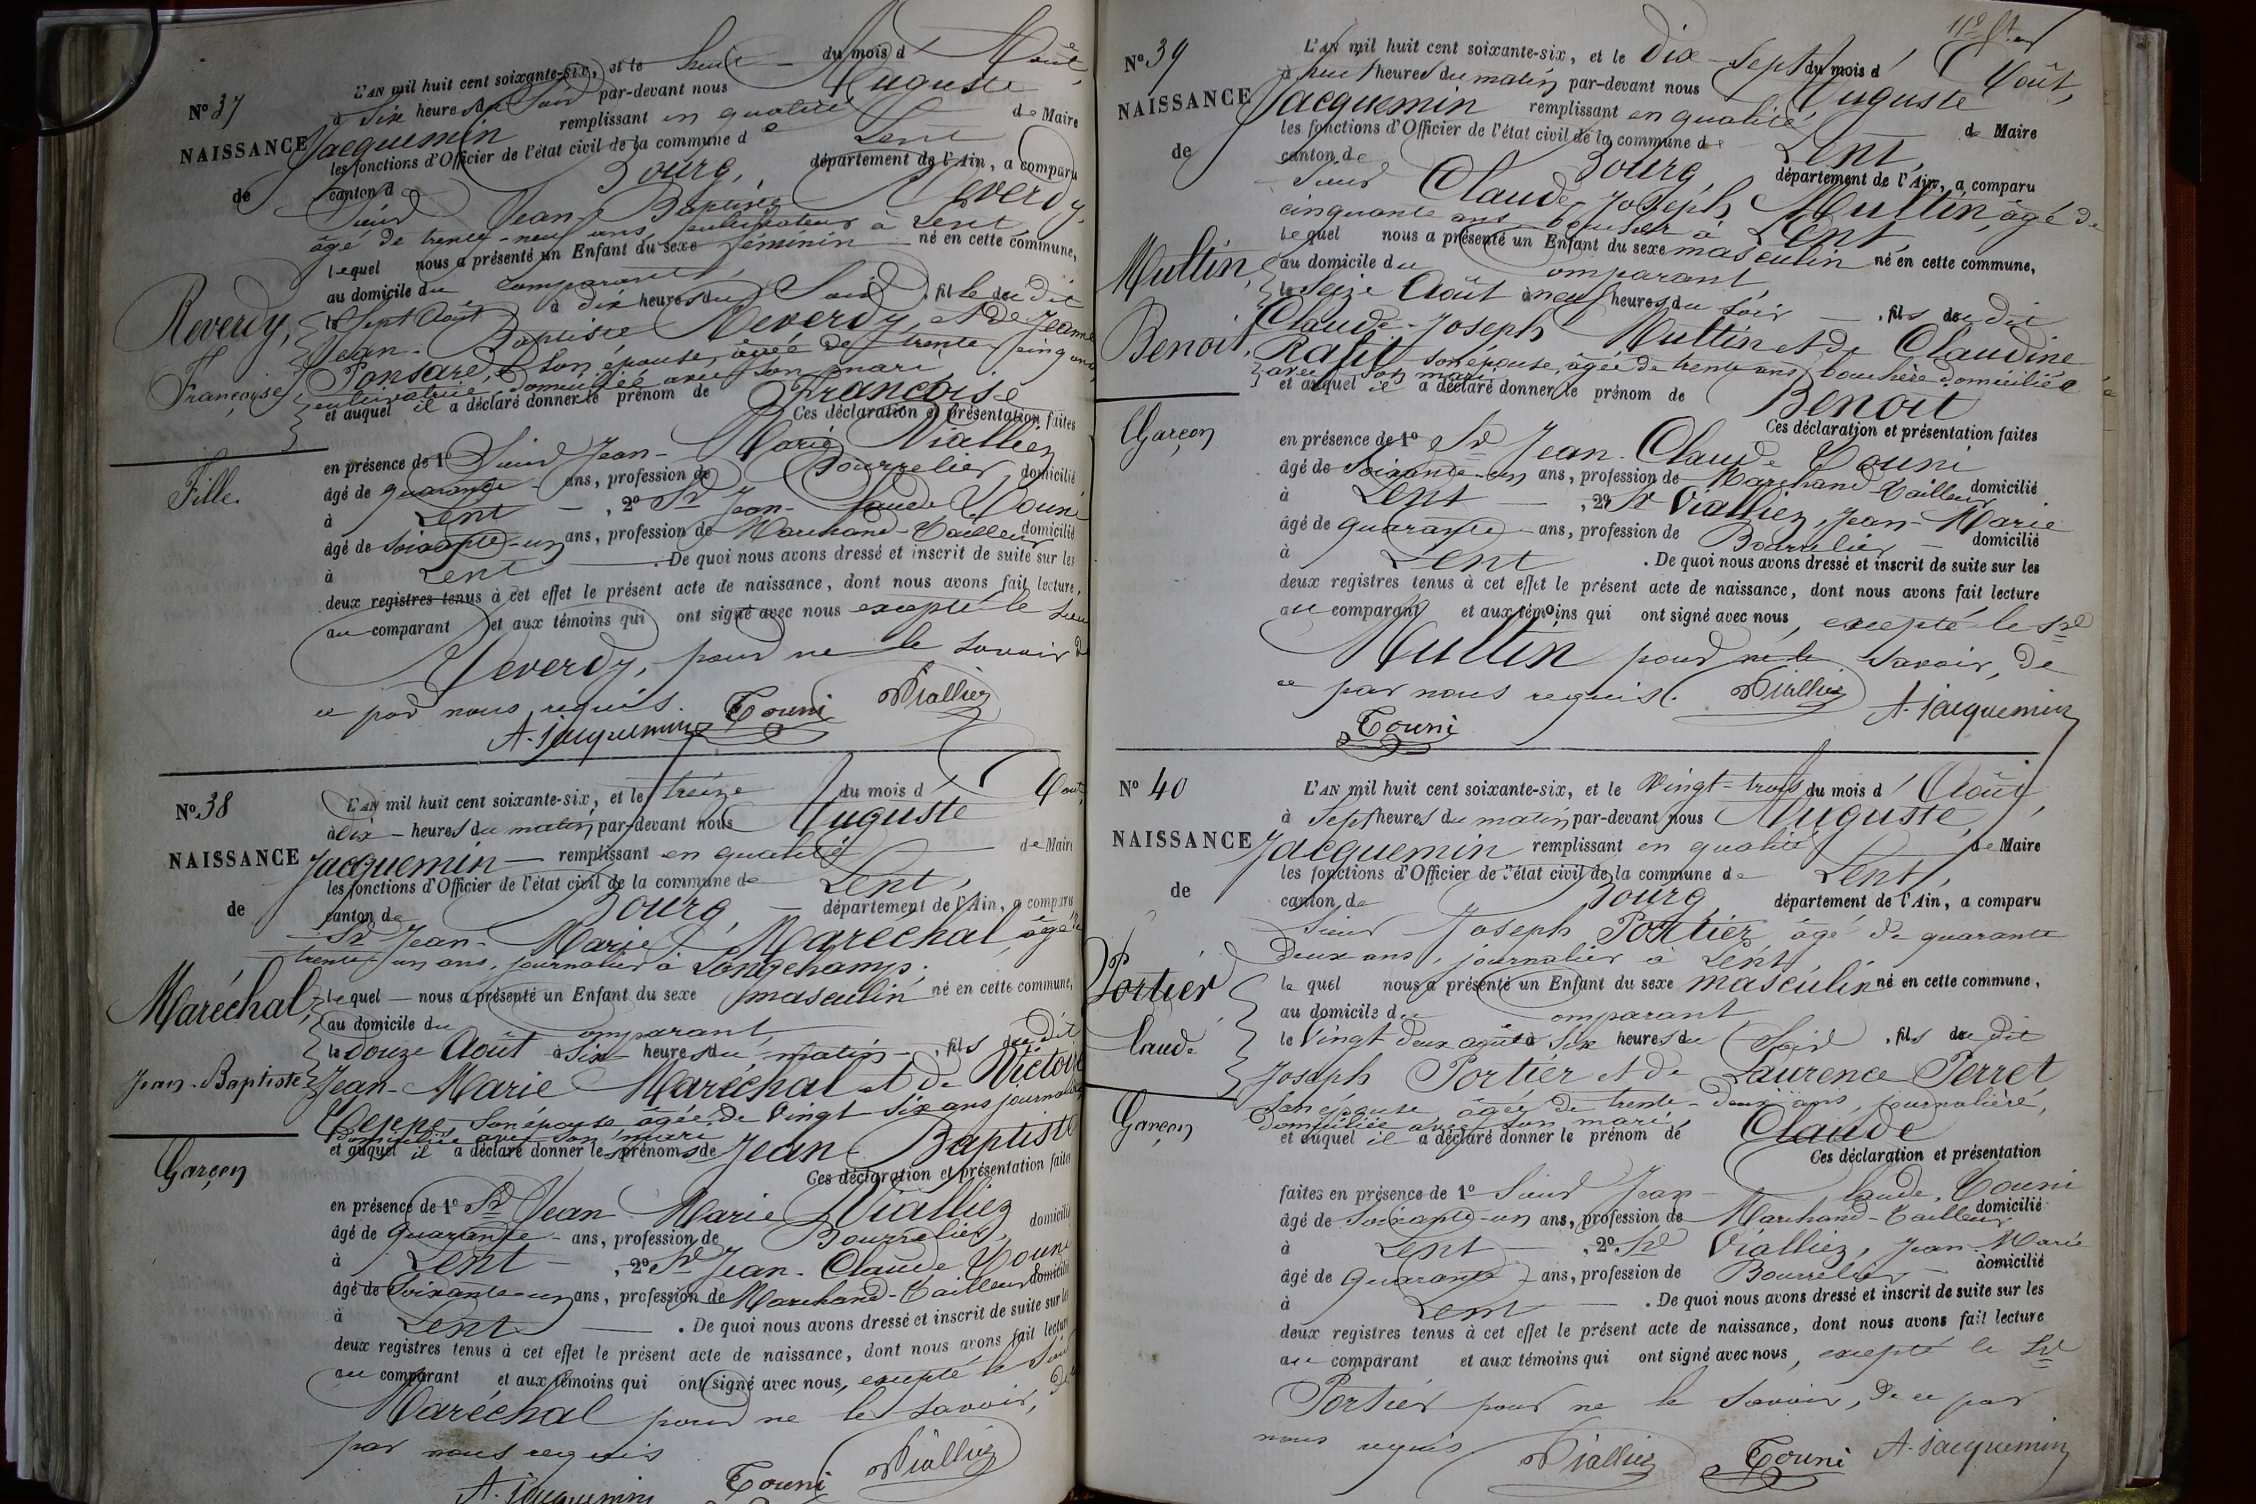 N° 37
NAISSANCE
de
Reverdy,
Françoise
Fille.
L'AN mil huit cent soixante-six, et le huit du mois d'Août,
à Six heures du Soir par-devant nous Auguste
Jacquemin remplissant en qualité de Maire
les fonctions d'Officier de l'état civil de la commune de Lent
canton d Bourg, département de l'Ain, a comparu
Sieur Jean Baptiste Reverdy,
âgé de trente-neuf ans, cultivateur à Lent
lequel nous a présenté un Enfant du sexe féminin né en cette commune,
au domicile du comparant,
le Sept Août à dix heures du Soir, fille du dit
Jean-Baptiste Reverdy, et de Jeanne
Ponsard, son épouse, âgée de trente cinq ans
cultivatrice, domiciliée avec son mari,
et auquel il a déclaré donner le prénom de Françoise
Ces déclaration et présentation faites
en présence de 1° Sieur Jean-Marie Vialliez
âgé de quarante ans, profession de Bourrelier domicilié
à Lent , 2° Sr Jean-Claude Touni
âgé de soixante-un ans, profession de Marchand-Tailleur domicilié
à Lent . De quoi nous avons dressé et inscrit de suite sur les
deux registres tenus à cet effet le présent acte de naissance, dont nous avons fait lecture,
au comparant et aux témoins qui ont signé avec nous excepté le Sieur
Reverdy, pour ne le savoir de
ce par nous requis.
A. Jacquemin Touni Vialliez
N° 38
NAISSANCE
de
Maréchal,
Jean-Baptiste
Garçon
L'AN mil huit cent soixante-six, et le treize du mois d'Août,
à Dix heures du matin, par-devant nous Auguste
Jacquemin remplissant en qualité de Maire
les fonctions d'Officier de l'état civil de la commune de Lent,
canton de Bourg, département de l'Ain, a comparu
Sr Jean-Marie Maréchal, âgé de
trente-un ans, journalier à Longchamp,
lequel nous a présenté un Enfant du sexe masculin né en cette commune,
au domicile du comparant,
le douze Août à Six heures du matin, fils du dit
Jean-Marie Maréchal et de Victoire
son épouse, âgée de Vingt-Six ans journalière
domiciliée avec son mari,
et auquel il a déclaré donner les prénoms de Jean Baptiste
Ces déclaration et présentation faites
en présence de 1° Sr Jean Marie Vialliez
âgé de quarante ans, profession de Bourrelier, domicilié
à Lent , 2° Sr Jean-Claude Touni
âgé de Soixante-un ans, profession de Marchand-Tailleur domicilié
à Lent . De quoi nous avons dressé et inscrit de suite sur les
deux registres tenus à cet effet le présent acte de naissance, dont nous avons fait lecture
au comparant et aux témoins qui ont signé avec nous, excepté le Sieur
Maréchal pour ne le savoir, de
par nous requis
A. Jacquemin Touni Vialliez
N° 39
NAISSANCE
de
Multin,
Benoit,
Garçon
L'AN mil huit cent soixante-six, et le Dix-Sept du mois d'Août,
à huit heures du matin par-devant nous Auguste
Jacquemin remplissant en qualité de Maire
les fonctions d'Officier de l'état civil de la commune de Lent,
canton de Bourg, département de l'Ain, a comparu
Sieur Claude-Joseph Multin, âgé de
cinquante ans boucher à Lent,
lequel nous a présenté un Enfant du sexe masculin né en cette commune,
au domicile du comparant,
le Seize Août à neuf heures du Soir, fils du dit
Claude-Joseph Multin et de Claudine
son épouse, âgée de trente ans, bouchère domiciliée
avec son mari,
et auquel il a déclaré donner le prénom de Benoit
Ces déclaration et présentation faites
en présence de 1° Sr Jean-Claude Touni
âgé de Soixante-un ans, profession de Marchand Tailleur domicilié
à Lent , 2° Sr Vialliez, Jean-Marie
âgé de quarante ans, profession de Bourrelier domicilié
à Lent . De quoi nous avons dressé et inscrit de suite sur les
deux registres tenus à cet effet le présent acte de naissance, dont nous avons fait lecture
au comparant et aux témoins qui ont signé avec nous, excepté le Sr
Multin pour ne le savoir, de
ce par nous requis.
Vialliez A. Jacquemin
Touni
N° 40
NAISSANCE
de
Portier
Claude
Garçon
L'AN mil huit cent soixante-six, et le Vingt-trois du mois d'Août,
à Sept heures du matin par-devant nous Auguste,
Jacquemin remplissant en qualité de Maire
les fonctions d'Officier de l'état civil de la commune de Lent,
canton de Bourg département de l'Ain, a comparu
Sieur Joseph Portier âgé de quarante
Deux ans, journalier à Lent,
le quel nous a présenté un Enfant du sexe masculin né en cette commune,
au domicile du comparant
le Vingt deux août à Six heures du Soir, fils du dit
Joseph Portier et de Laurence Perret
son épouse, âgée de trente-deux ans, journalière,
domiciliée avec son mari,
et auquel il a déclaré donner le prénom de Claude
Ces déclaration et présentation
faites en présence de 1° Sieur Jean-Claude, Touni
âgé de Soixante-un ans, profession de Marchand-Tailleur domicilié
à Lent , 2° Sr Vialliez, Jean-Marie
âgé de Quarante ans, profession de Bourrelier domicilié
à Lent . De quoi nous avons dressé et inscrit de suite sur les
deux registres tenus à cet effet le présent acte de naissance, dont nous avons fait lecture
au comparant et aux témoins qui ont signé avec nous, excepté le Sr
Portier pour ne le savoir, de ce par
nous requis
Vialliez Touni A. Jacquemin